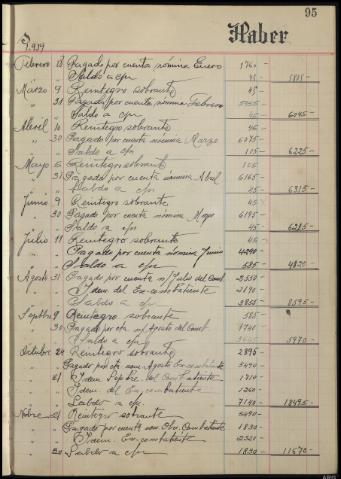 95
Haber
1.939
Febrero 18 Pagado por cuenta nomina Enero 5760
" " Saldo a c/n 45 - 5805 -
Marzo 9 Reintegro sobrante 45 -
" 31 Pagado por cuenta nomina Febrero
" " Saldo a c/n 45 - 6045 -
Abril 10 Reintegro sobrante 45 -
" 30 Pagado por cuenta nomina Marzo 6075 -
" " Saldo a c/n 105 - 6225 -
Mayo 5 Reintegro sobrante 105
" 31 Pagado por cuenta nomina Abril 6165 -
" " Saldo a c/n 45 - 6315 -
Junio 9 Reintegro sobrante 45 -
" 30 Pagado por cuenta nomina Mayo 6195 -
" " Saldo a c/n 45 - 6285 -
Julio 11 Reintegro sobrante 45 -
" " Pagado por cuenta nomina Junio 4290 -
" " Saldo a c/n 585 - 4920 -
Agosto 31 Pagado por cuenta n/ Julio del Comt 2550
" " Idem del Ex-combatiente 2190 -
" " Saldo a c/n 3855 8595 -
Septbre 9 Reintegro sobrante 585 -
" 30 Pagado por cta n/ Agosto del Comt 1740
" " Saldo a c/n 5970 -
Octubre 24 Reintegro sobrante 2895 -
" " Pagado por cta nom. Agosto Ex-combatiente 5490 -
" 21 Idem Septbre del Combatiente 1710
" " Idem del Ex combatiente 1260 -
" " Saldo a c/n 7140 18495 -
Nobre 21 Reintegro sobrante 5490 -
" " Pagado por cuenta nom Obre Combatiente 1830
" " Idem Ex-combatiente 2520
" 30 Saldo a c/n 1830 11670 -